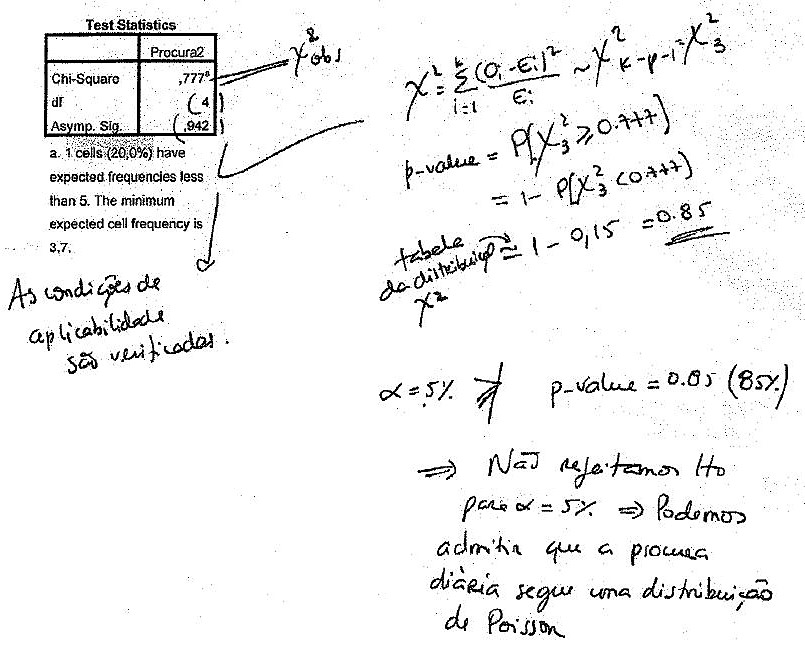 Test Statistics
Procura2
Chi-Square ,777ª
df (4)
Asymp. Sig. (,942)
a. 1 cells (20,0%) have
expected frequencies less
than 5. The minimum
expected cell frequency is
3,7.
χ²obs
As condições de
aplicabilidade
são verificadas.
χ² = Σ_{i=1}^{k} (Oi - Ei)² / Ei ~ χ²_{k-p-1} = χ²_3
p-value = P(χ²_3 ≥ 0.777)
= 1 - P(χ²_3 < 0.777)
tabela
da distribuição
χ²
≈ 1 - 0,15 = 0.85
α = 5% ≯ p-value = 0.85 (85%)
⇒ Não rejeitamos Ho
para α = 5% ⇒ Podemos
admitir que a procura
diária segue uma distribuição
de Poisson